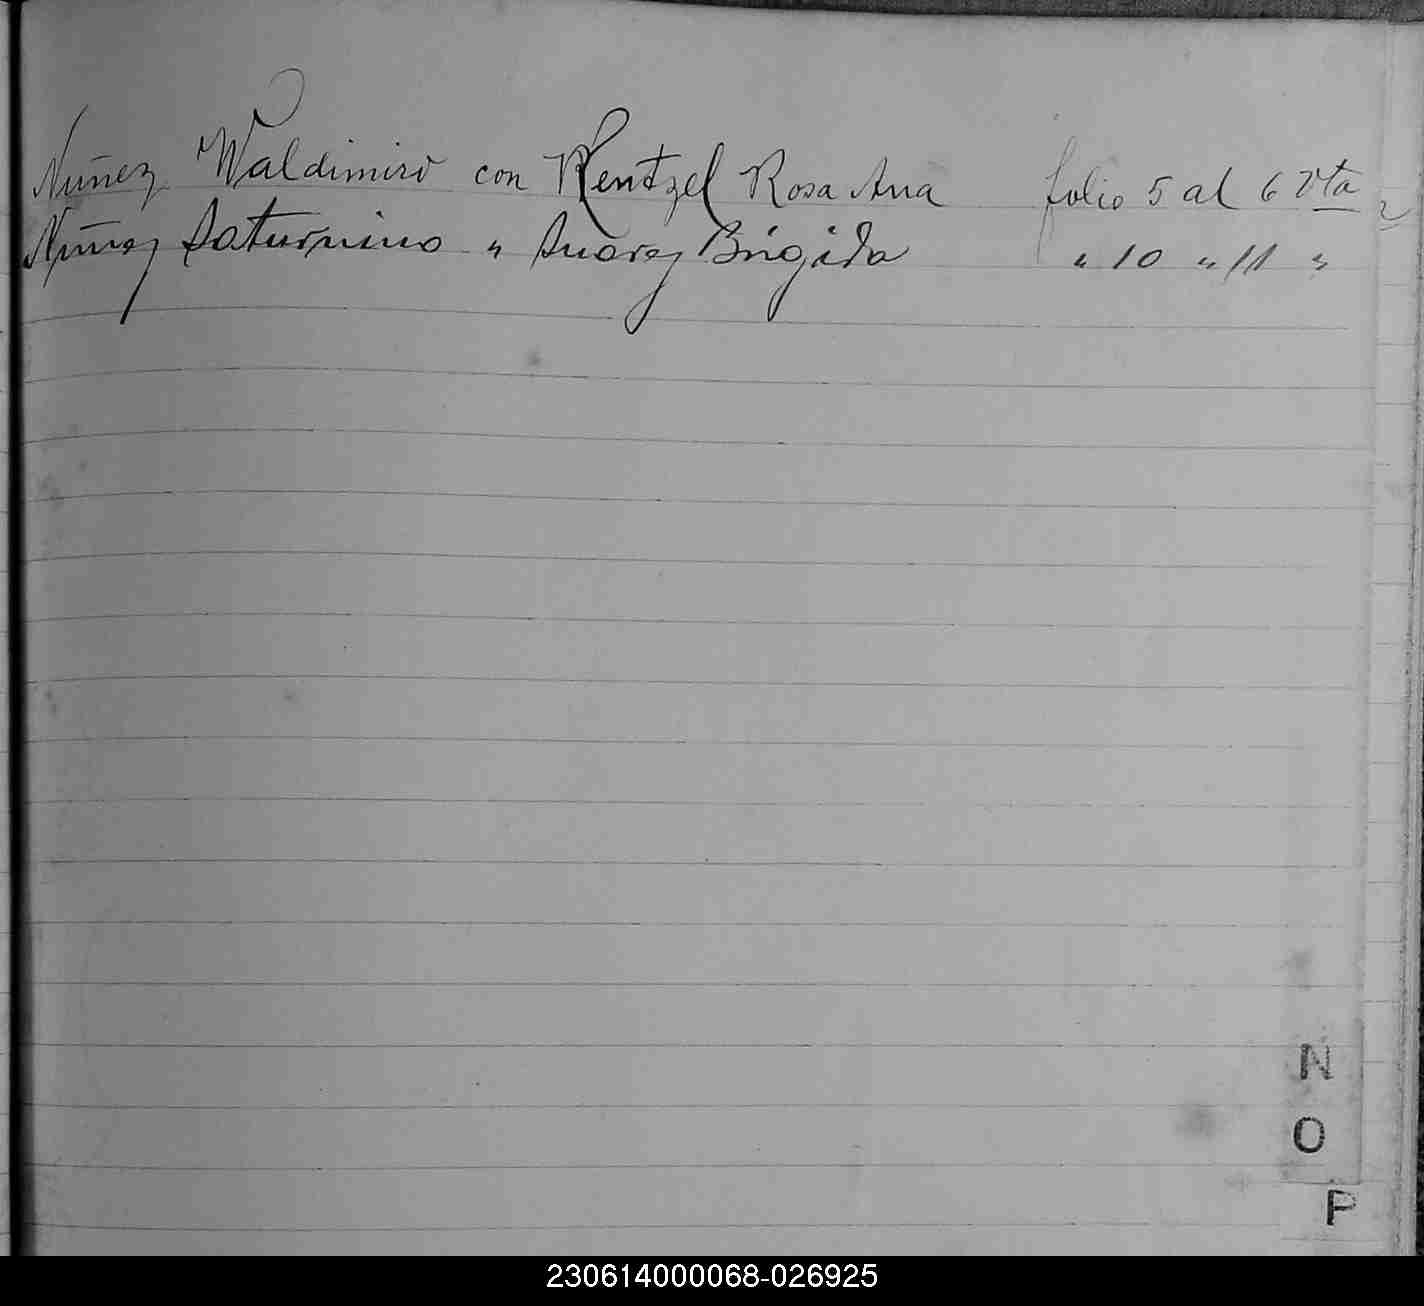 Nuñez Waldimiro con Rentzel Rosa Ana folio 5 al 6 Vta
Nuñez Saturnino " Suarez Brigida " 10 " 11 "
N
O
P
230614000068-026925